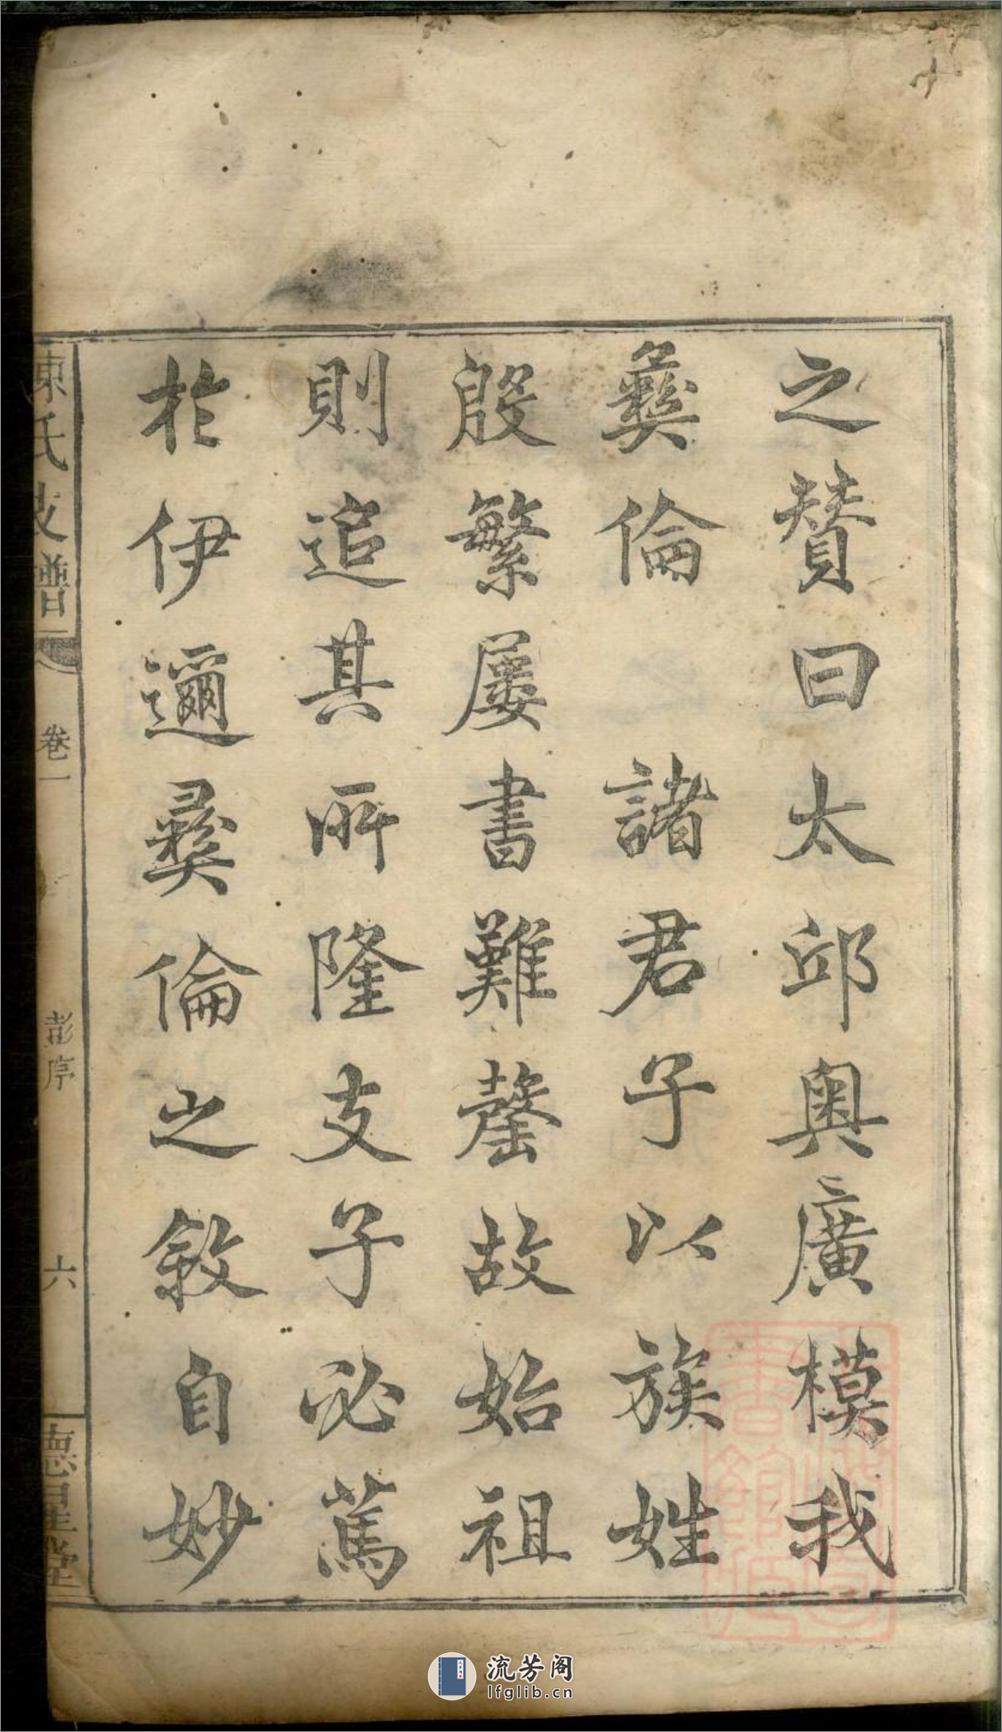 之贊曰太邱奥廣模我
彝倫 諸君子以族姓
殷繁屢書難罄故始祖
則追其所隆支子必篤
於伊邇彝倫之敘自妙
陳氏支譜 卷一 彭序 六 德星堂
流芳阁
lfglib.cn